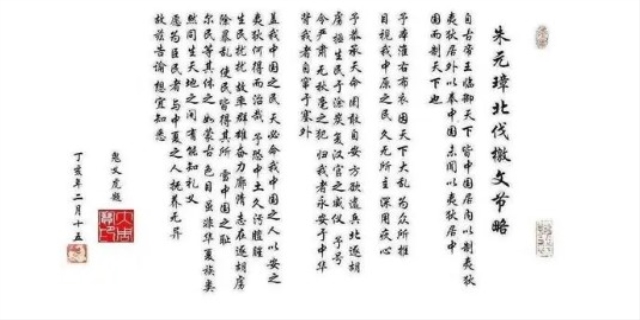 朱元璋北伐檄文节略
自古帝王临御天下皆中国居内以制夷狄
夷狄居外以奉中国未闻以夷狄居中
国而制天下也
予本淮右布衣因天下大乱为众所推
目视我中原之民久无所主深用疚心
予恭承天命罔敢自安方欲遣兵北逐胡
虏拯生民于涂炭复汉官之威仪予号
令严肃无秋毫之犯归我者永安于中华
背我者自窜于塞外
盖我中国之民天必命我中国之人以安之
夷狄何得而治哉予恐中土久污膻腥
生民扰扰故率群雄奋力廓清志在逐胡虏
除暴乱使民皆得其所雪中国之耻
尔民等其体之如蒙古色目虽非华夏族类
然同生天地之间有能知礼义
愿为臣民者与中夏之人抚养无异
故兹告谕想宜知悉
题
丁亥年二月十五